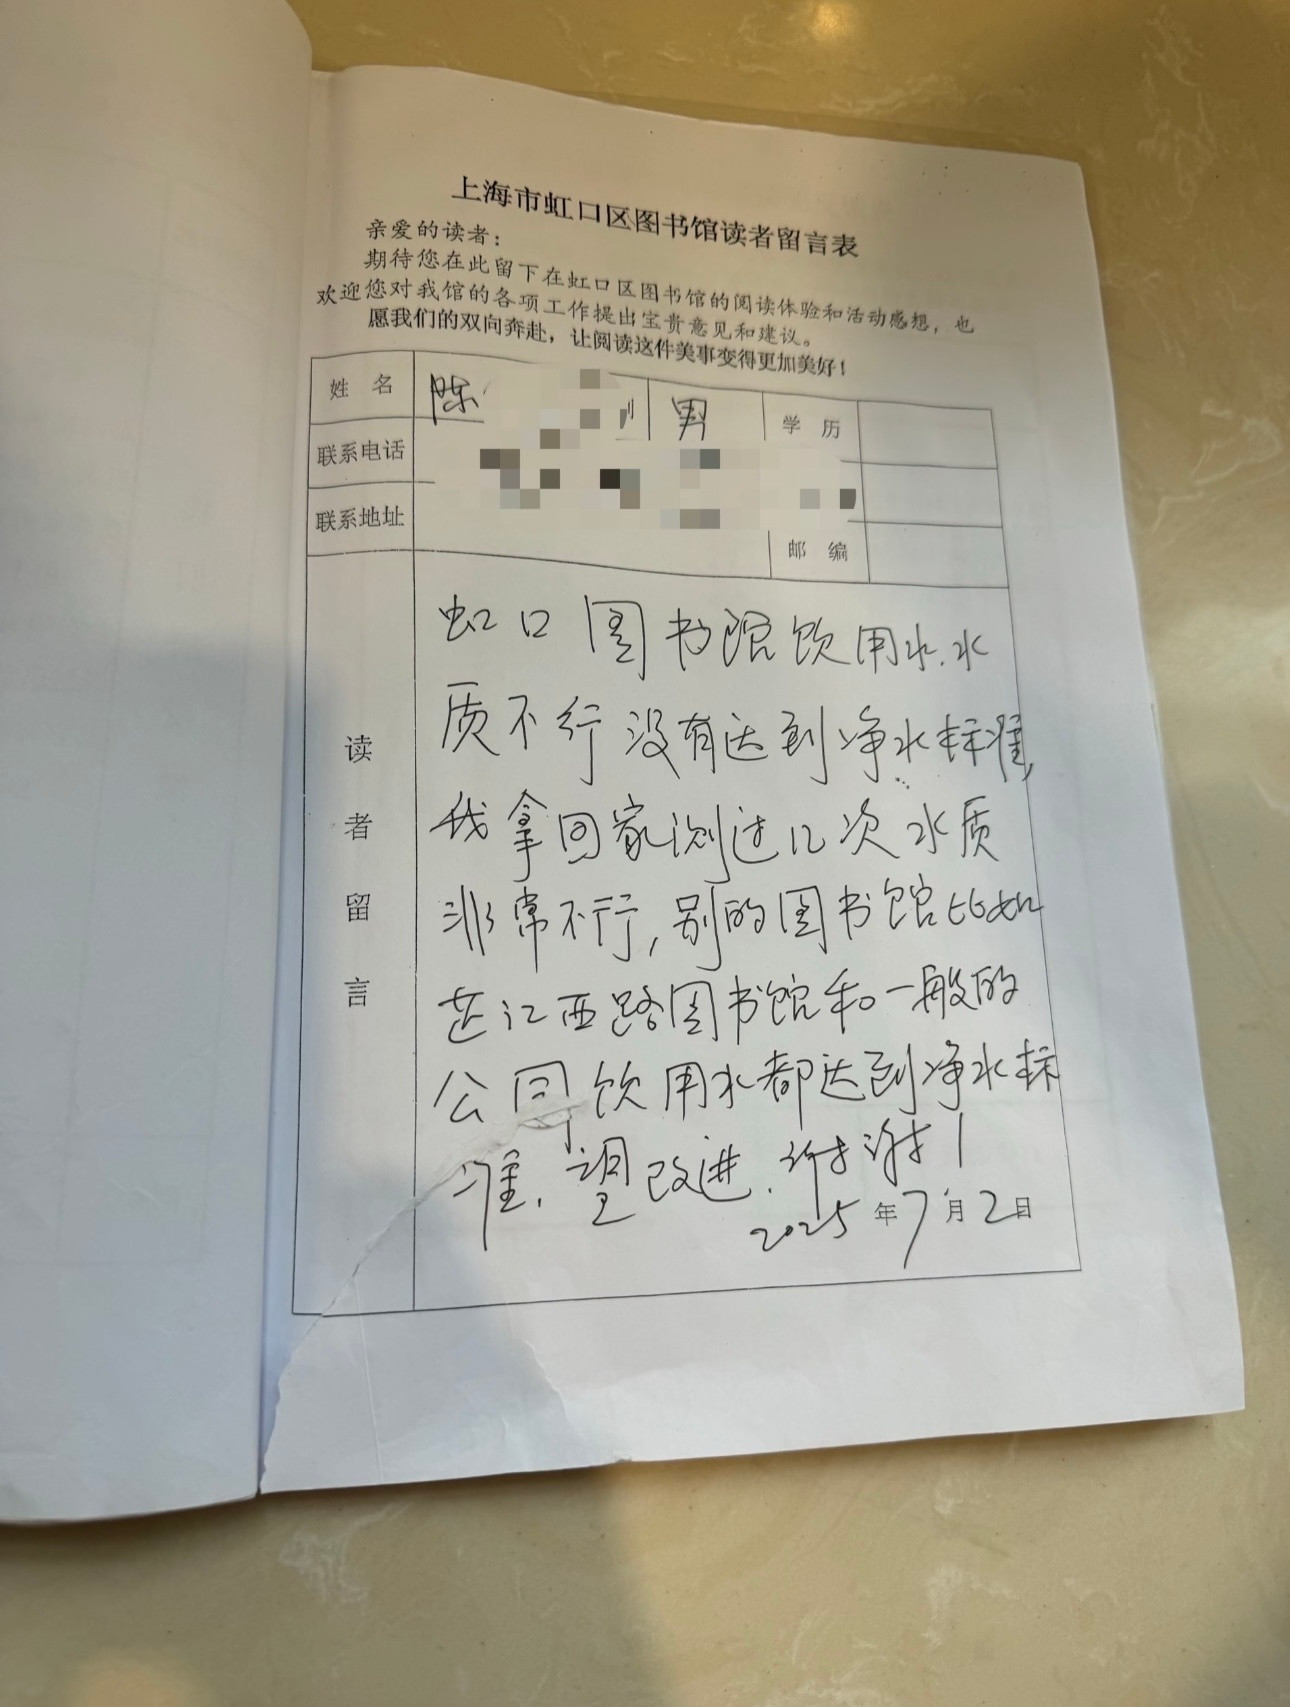 上海市虹口区图书馆读者留言表
亲爱的读者：
期待您在此留下在虹口区图书馆的阅读体验和活动感想，也
欢迎您对我馆的各项工作提出宝贵意见和建议。
愿我们的双向奔赴，让阅读这件美事变得更加美好！
姓 名 陈 别 男 学 历
联系电话
联系地址
邮 编
读者留言
虹口图书馆饮用水.水
质不行没有达到净水标准,
我拿回家测过几次水质
非常不行,别的图书馆比如
芷江西路图书馆和一般的
公司饮用水都达到净水标
准.望改进.谢谢!
2025年7月2日